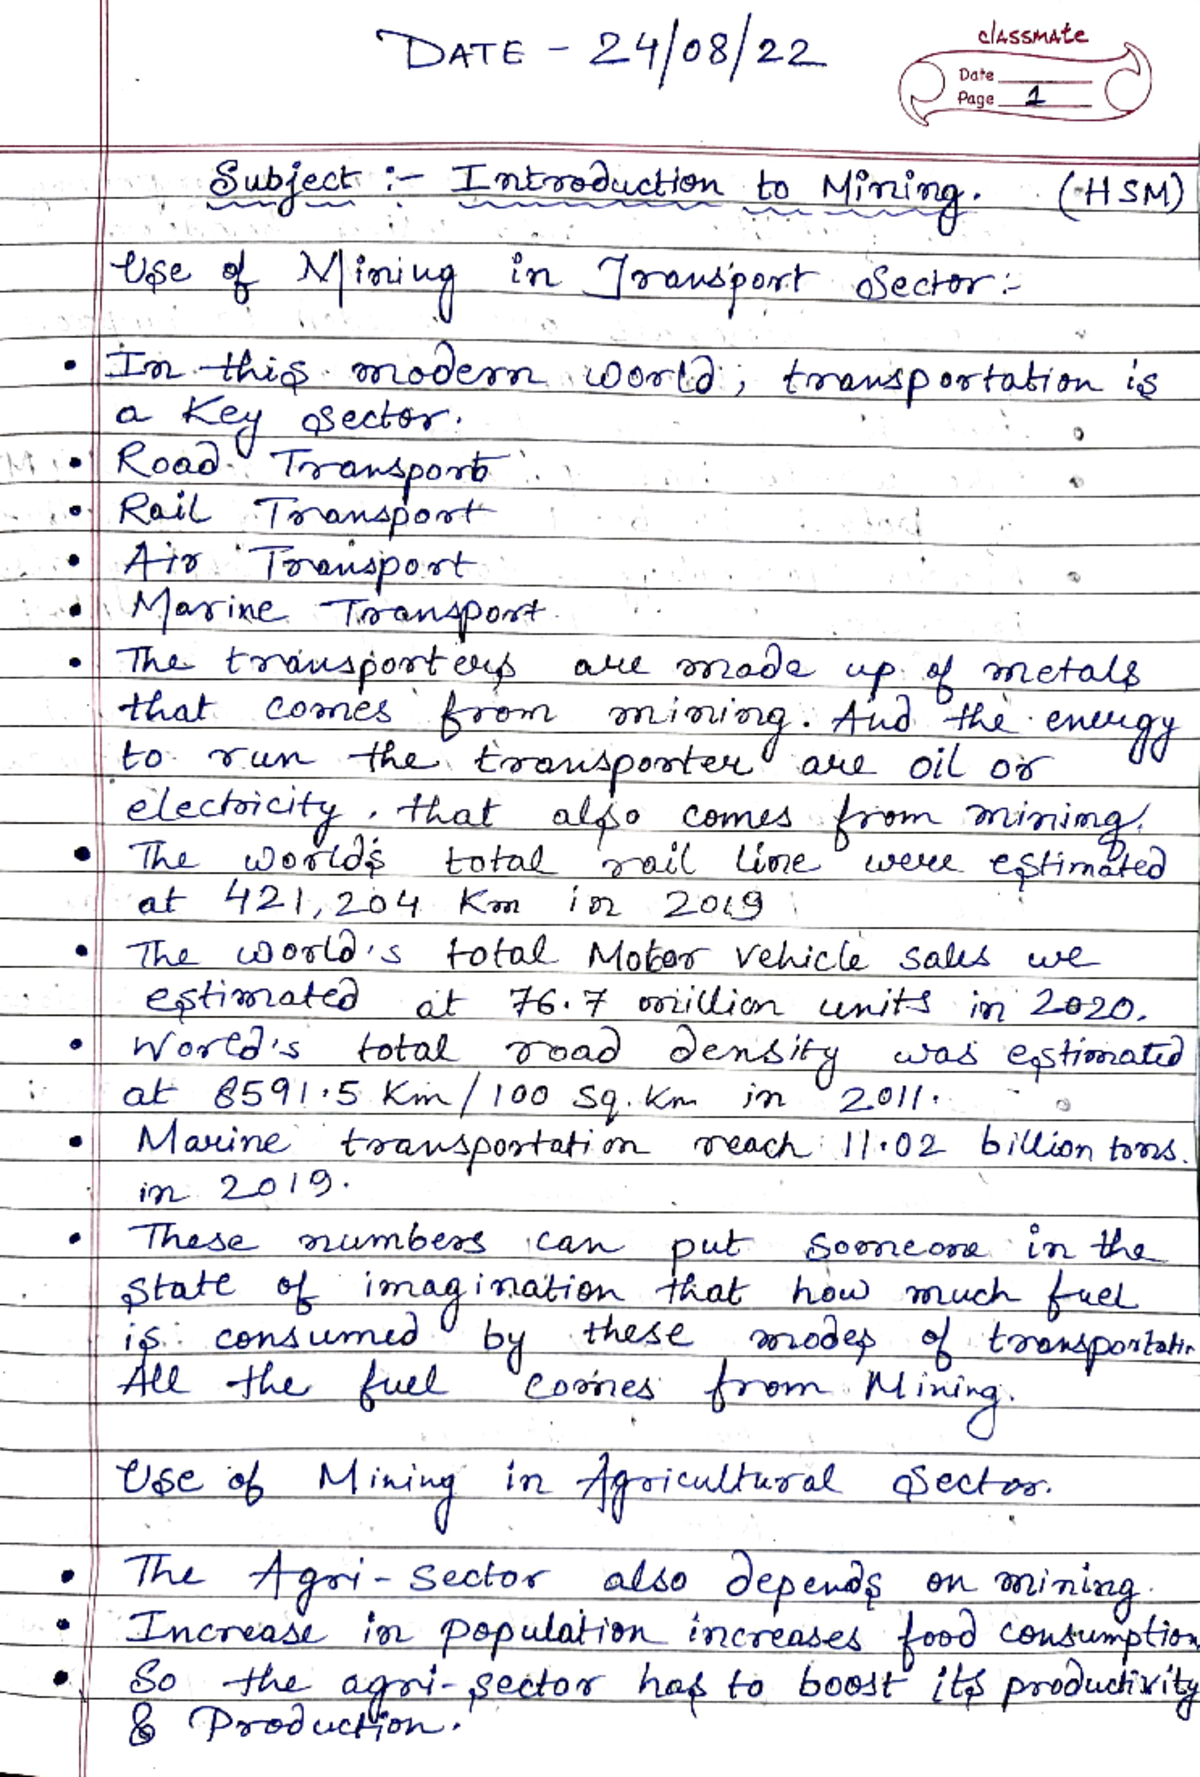 DATE - 24/08/22
classmate
Date
Page 1
Subject :- Introduction to Mining. (HSM)
Use of Mining in Transport Sector :-
• In this modern world, transportation is
a Key Sector.
• Road Transport
• Rail Transport
• Air Transport
• Marine Transport
• The transporters are made up of metals
that comes from mining. And the energy
to run the transporter are oil or
electricity, that also comes from mining.
• The world's total rail line were estimated
at 421,204 Km in 2019
• The world's total Motor vehicle sales we
estimated at 76.7 million units in 2020.
• World's total road density was estimated
at 8591.5 Km/100 sq. Km in 2011.
• Marine transportation reach 11.02 billion tons.
in 2019.
• These numbers can put someone in the
state of imagination that how much fuel
is consumed by these modes of transportatin
All the fuel comes from Mining.
Use of Mining in Agricultural Sector.
• The Agri-sector also depends on mining.
• Increase in population increases food consumption
• So the agri-sector has to boost its productivity
& Production.